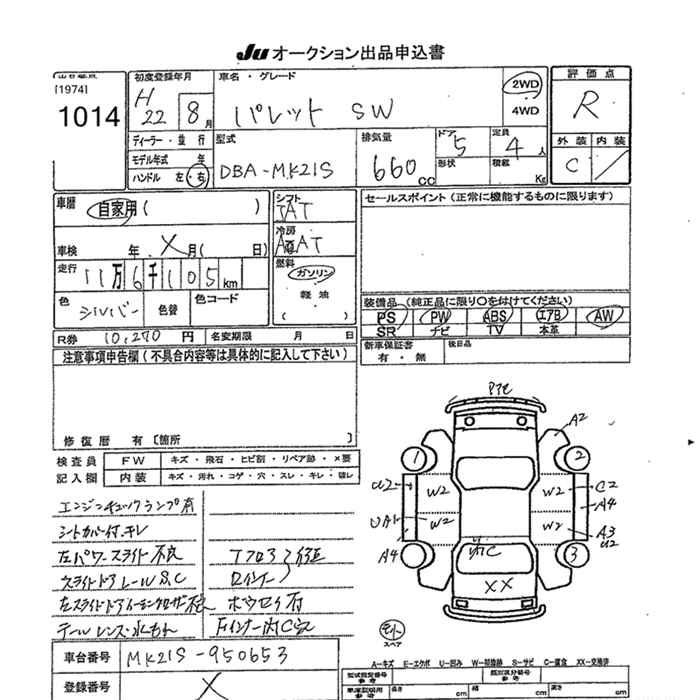 Ju オークション出品申込書
[1974]
1014
初度登録年月
H 22 8月
車名・グレード
パレット SW
2WD
4WD
評価点
R
外装 内装
C
ディーラー・並行
モデル年式 年
ハンドル 左・右
型式
DBA-MK21S
排気量
660 cc
ドア 5
形状
定員 4人
積載 Kg
車歴
自家用( )
車検 年 X 月( 日)
走行
11万6千105km
色
シルバー
色替
色コード
シフト
IAT
冷房
AAT
燃料
ガソリン
軽油
( )
セールスポイント(正常に機能するものに限ります)
装備品(純正品に限り○を付けてください)
PS PW ABS エアB AW
SR ナビ TV 本革
R券 10,270 円
名変期限 月 日
新車保証書
有・無
後日品
注意事項申告欄(不具合内容等は具体的に記入して下さい)
修復歴 有〔箇所 〕
検査員
記入欄
FW キズ・飛石・ヒビ割・リペア跡・×要
内装 キズ・汚れ・コゲ・穴・スレ・キレ・破レ
エンジンチェックランプ有
シートカバー付.キレ
左パワースライド不良
スライドドアレールS,C
テールレンズ・水もれ
A2
1
2
U2
W2
W2
C2
UA1
W2
W2
A4
A3
U2
A4
3
C
XX
スペア
車台番号
MK21S-950653
登録番号
X
A-キズ E-エクボ U-凹み W-補修跡 S-サビ C-腐食 XX-交換済
型式指定番号
参考
類別区分番号
参考
長さ cm 幅 cm 高さ cm